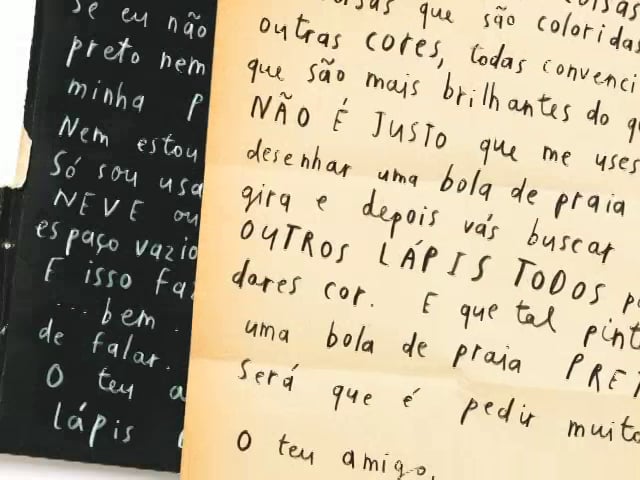 Se eu não
preto nem
minha p
Nem estou
Só sou usa
NEVE ou
espaço vazio
E isso faz
... bem .
de falar.
O teu a
lápis
que são coloridas
outras cores, todas convenci
que são mais brilhantes do q
NÃO É JUSTO que me uses
desenhar uma bola de praia
gira e depois vás buscar
OUTROS LÁPIS TODOS p
dares cor. E que tal pint
uma bola de praia PRET
Será que é pedir muito
O teu amigo,